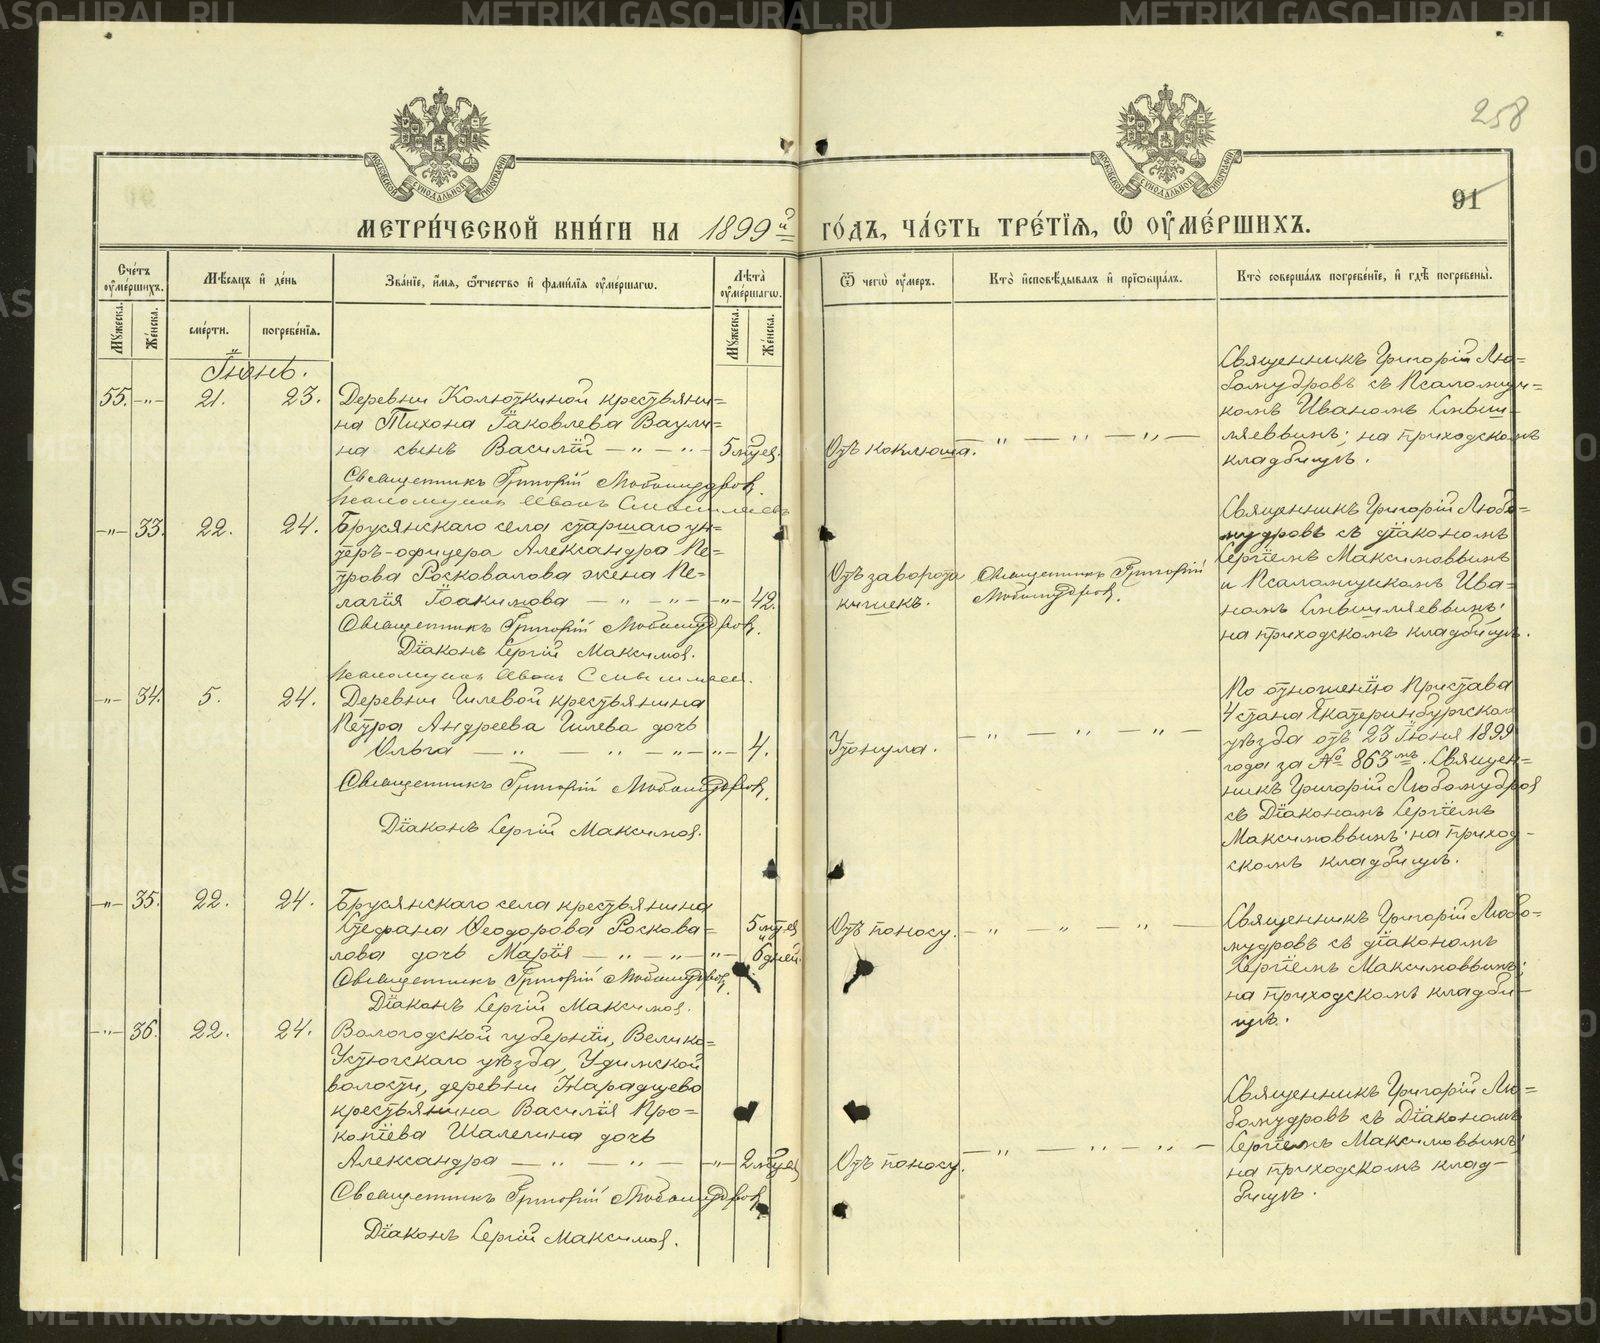 258
91
МЕТРИ́ЧЕСКОЙ КНИ́ГИ НА 1899й ГО́ДЪ, ЧА́СТЬ ТРЕ́ТЇѦ, Ѽ ОУ҆МЕ́РШИХЪ.
Сче́тъ оу҆ме́ршихъ.
Мѣ́сяцъ и҆ де́нь
Зва́нїе, и҆́мя, ѻ҆́тчество и҆ фами́лїя оу҆ме́ршагѡ.
Лѣ́та оу҆ме́ршагѡ.
Ѿ чегѡ̀ оу҆́меръ.
Кто̀ и҆сповѣ́дывалъ и҆ прїѡбща́лъ.
Кто̀ соверша́лъ погребе́нїе, и҆ гдѣ̀ погребены̀.
Мꙋ́жеска.
Же́нска.
сме́рти.
погребе́нїя.
Мꙋ́жеска.
Же́нска.
Іюнь.
55. -"- 21. 23. Деревни Колюткиной крестьяни=
на Тихона Іаковлева Ваули=
на сынъ Василій — " — " — 5 мцев.
Священникъ Григорій Любомудров.
Псаломщик Иванъ
Отъ коклюша. — " — " — " —
Священникъ Григорій Лю=
бомудровъ съ Псаломщи=
комъ Иваномъ
на приходскомъ
кладбищѣ.
-"- 33. 22. 24. Бруснянскаго села старшаго ун=
теръ-офицера Александра Пе=
трова Росковалова жена Пе=
лагія Іоакимова — " — " — " — 42.
Священникъ Григорій Любомудров.
Діаконъ Сергій Максимов.
Псаломщик Иван
Отъ заворота
кишекъ.
Священникъ Григорій
Любомудров.
Священникъ Григорій Любо=
мудровъ съ діакономъ
Сергіемъ Максимовымъ
и Псаломщикомъ Ива=
номъ
на приходскомъ кладбищѣ.
-"- 34. 5. 24. Деревни Гилевой крестьянина
Петра Андреева Гилева дочь
Ольга — " — " — " — " — 4.
Священникъ Григорій Любомудров.
Діаконъ Сергій Максимов.
Утонула. — " — " — " —
По отношенію Пристава
4 стана Екатеринбургскаго
уѣзда отъ 23 Іюня 1899
года за № 863мъ. Священ=
никъ Григорій Любомудров
съ Діакономъ Сергіемъ
Максимовымъ; на приход=
скомъ кладбищѣ.
-"- 35. 22. 24. Бруснянскаго села крестьянина
Стефана Ѳеодорова Роскова=
лова дочь Марія — " — " — " — 5 мцев и 6 дней.
Священникъ Григорій Любомудров.
Діаконъ Сергій Максимов.
Отъ поносу. — " — " — " —
Священникъ Григорій Любо=
мудровъ съ діакономъ
Сергіемъ Максимовымъ;
на приходскомъ кладби=
щѣ.
-"- 36. 22. 24. Вологодской губерніи, Велико=
Устюгскаго уѣзда, Удимской
волости, деревни
крестьянина Василія Про=
копіева Шалегина дочь
Александра — " — " — -"- 2 мцев
Священникъ Григорій Любомудров.
Діаконъ Сергій Максимов.
Отъ поносу. — " — " — " —
Священникъ Григорій Лю=
бомудровъ съ Діакономъ
Сергіемъ Максимовымъ;
на приходскомъ клад=
бищѣ.
METRIKI.GASO-URAL.RU